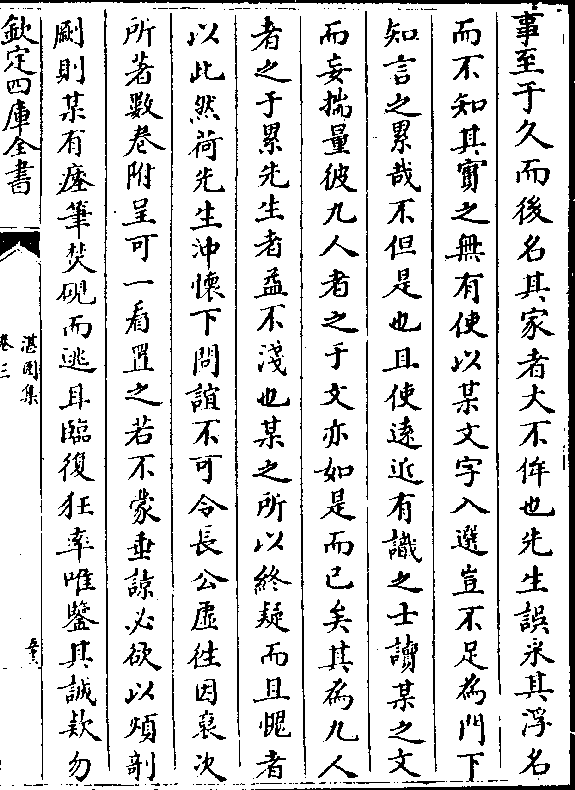 事至于久而後名其家者大不侔也先生誤采其浮名
而不知其實之無有使以某文字入選豈不足為門下
知言之累哉不但是也且使遠近有識之士讀某之文
而妄揣量彼九人者之于文亦如是而已矣其為九人
者之于累先生者益不淺也某之所以終疑而且愧者
以此然荷先生沖懷下問誼不可令長公虛往因裒次
所著數卷附呈可一看置之若不蒙垂諒必欲以煩剞
劂則某有瘞筆焚硯而逃耳臨復狂率唯鑒其誠款勿
欽定四庫全書
湛園集
卷三